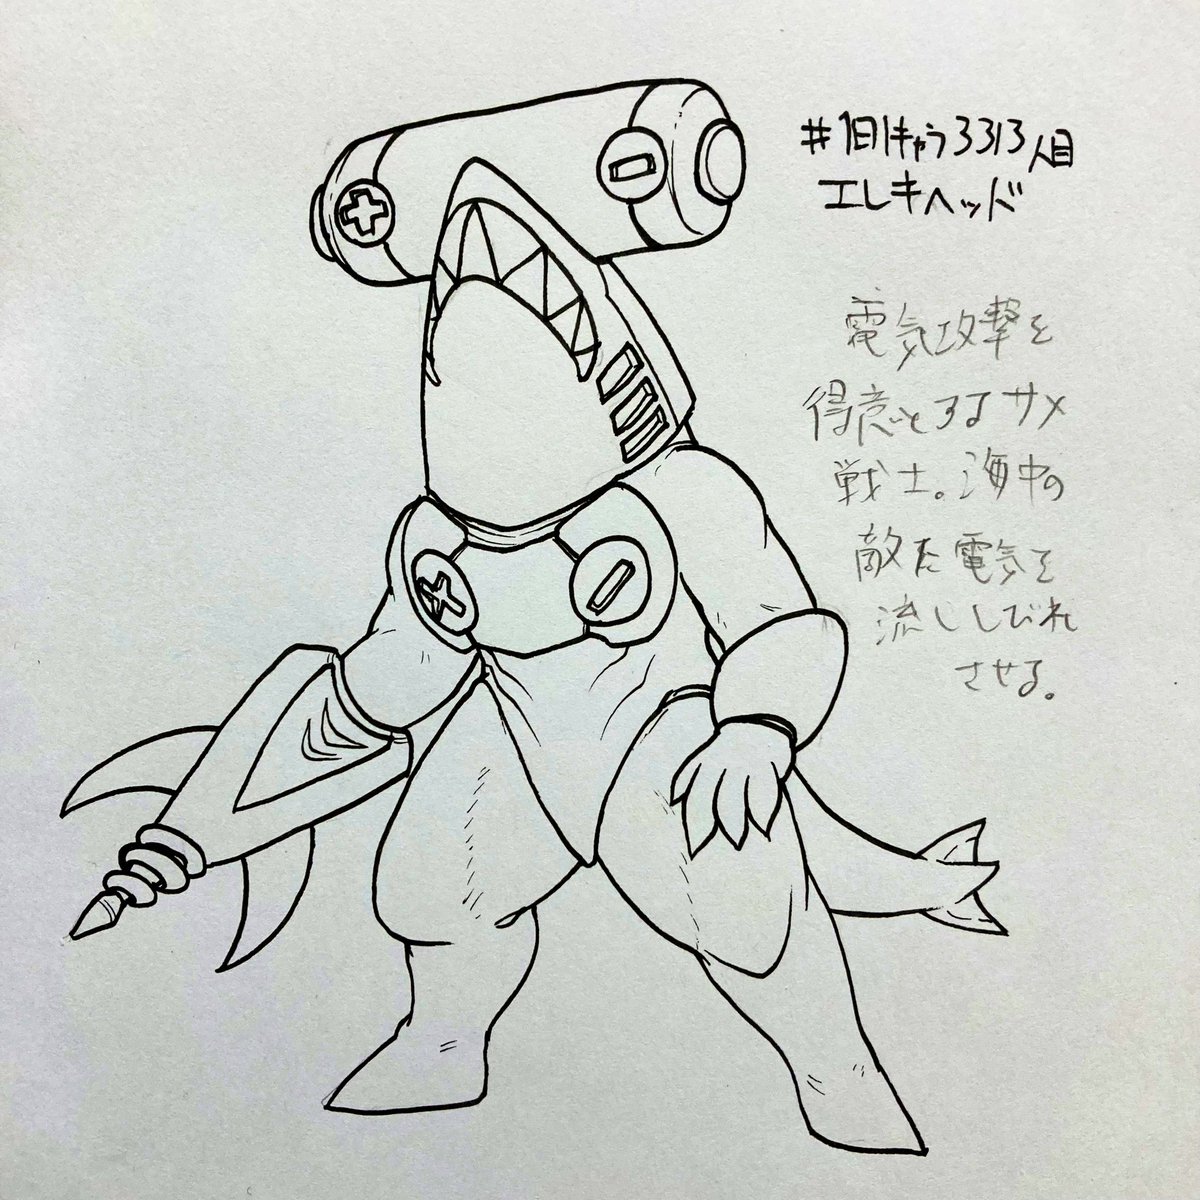 #1日1キャラ3313人目
エレキヘッド
電気攻撃を
得意とするサメ
戦士。海中の
敵に電気を
流ししびれ
させる。